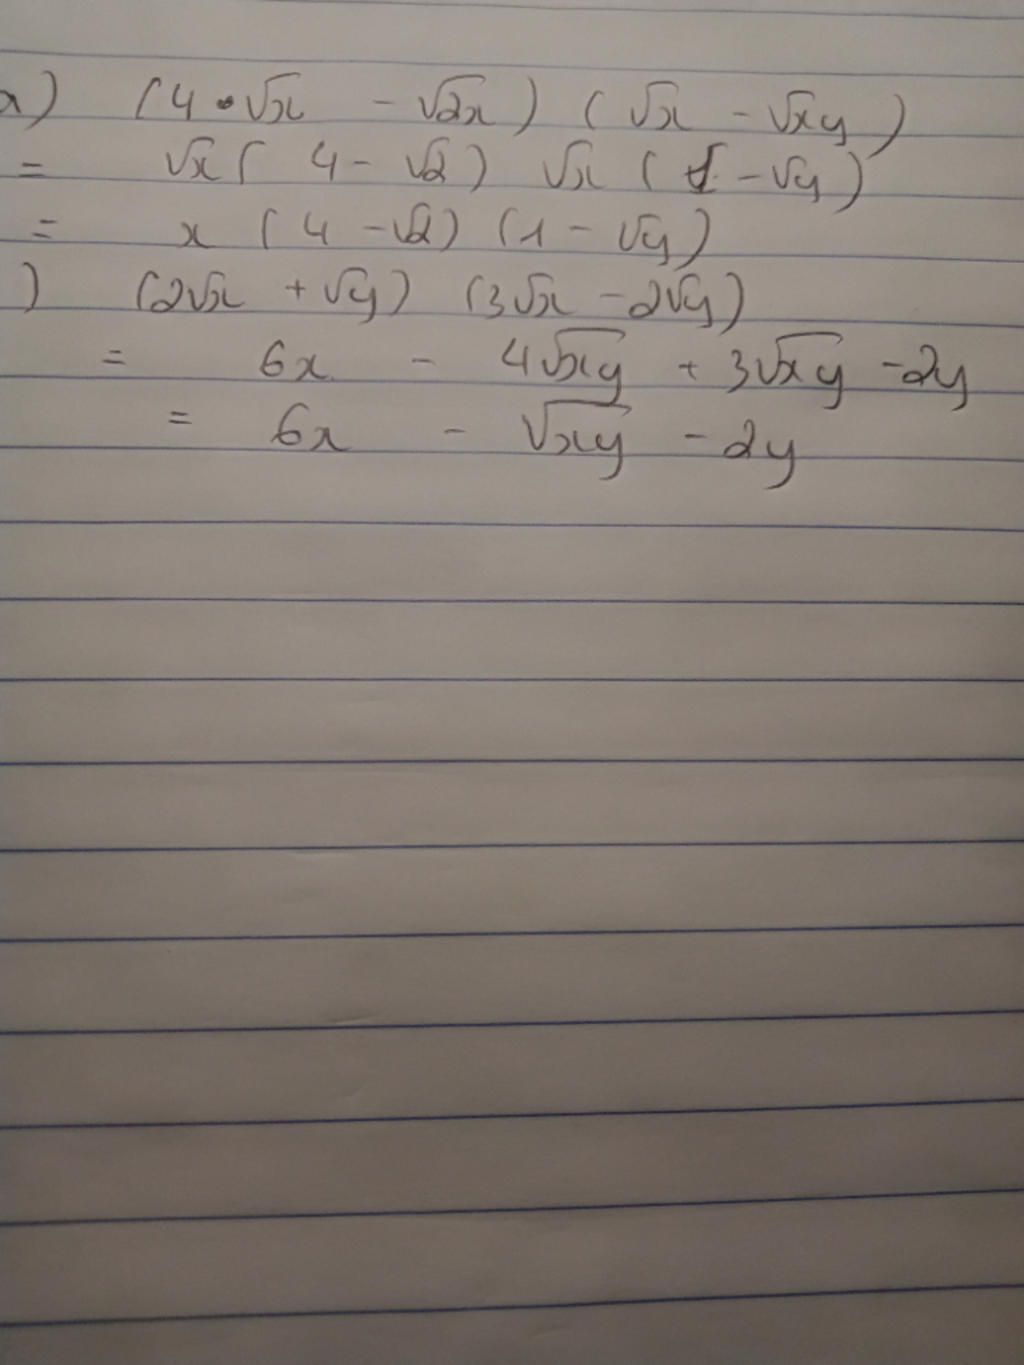 a) (4·√x - √2x) (√x - √xy)
= √x ( 4 - √2) √x (1 - √y)
= x (4 - √2) (1 - √y)
) (2√x + √y) (3√x - 2√y)
= 6x - 4√xy + 3√xy - 2y
= 6x - √xy - 2y